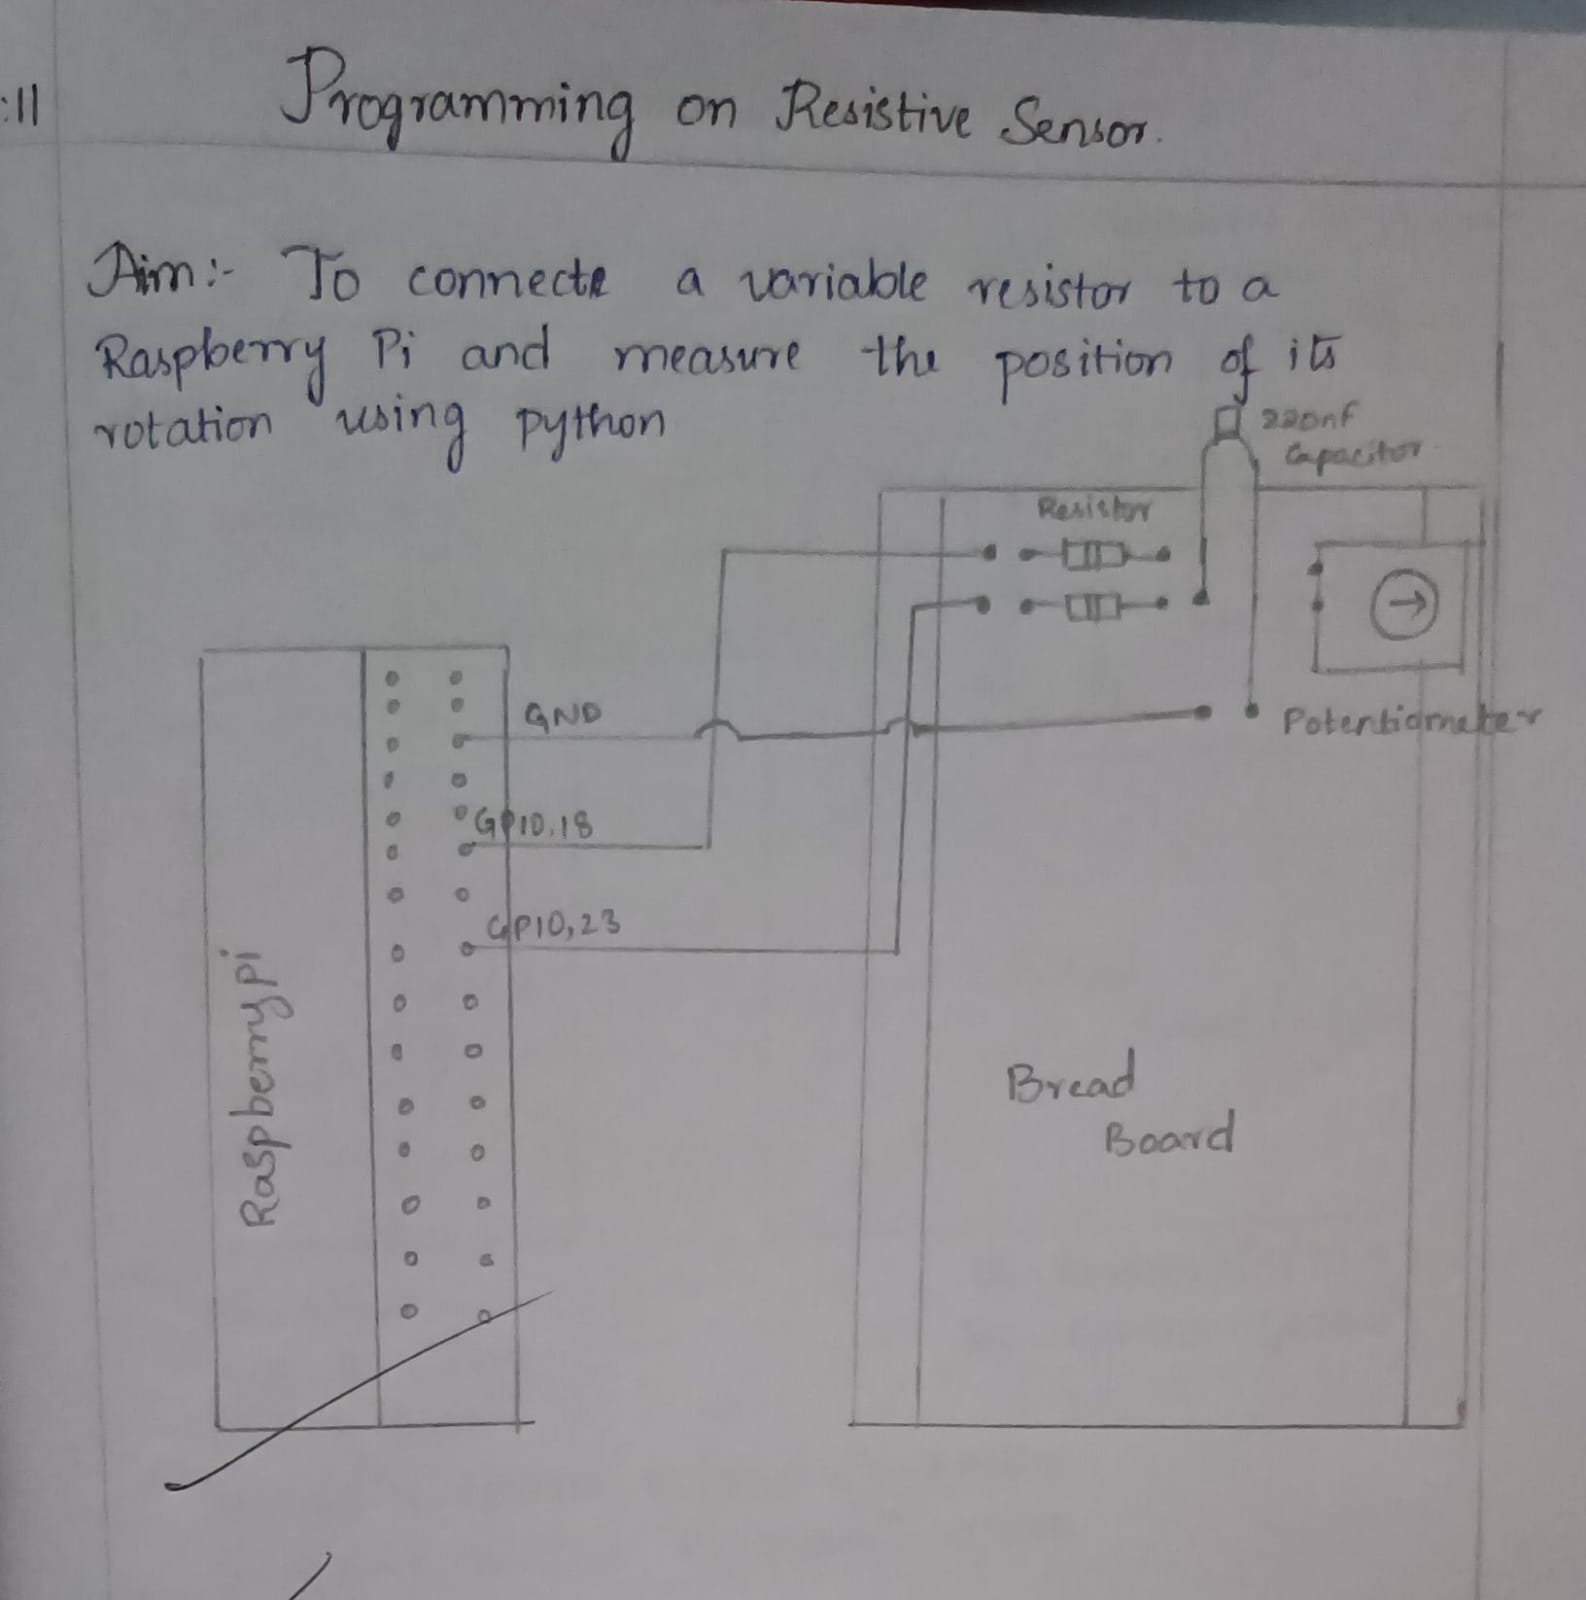 :11
Programming on Resistive Sensor.
Aim:- To connecte a variable resistor to a
Raspberry Pi and measure the position of its
rotation using python
220nF
Capacitor
Resistor
GND
Potentiometer
GPIO.18
GPIO,23
Raspberry pi
Bread
Board